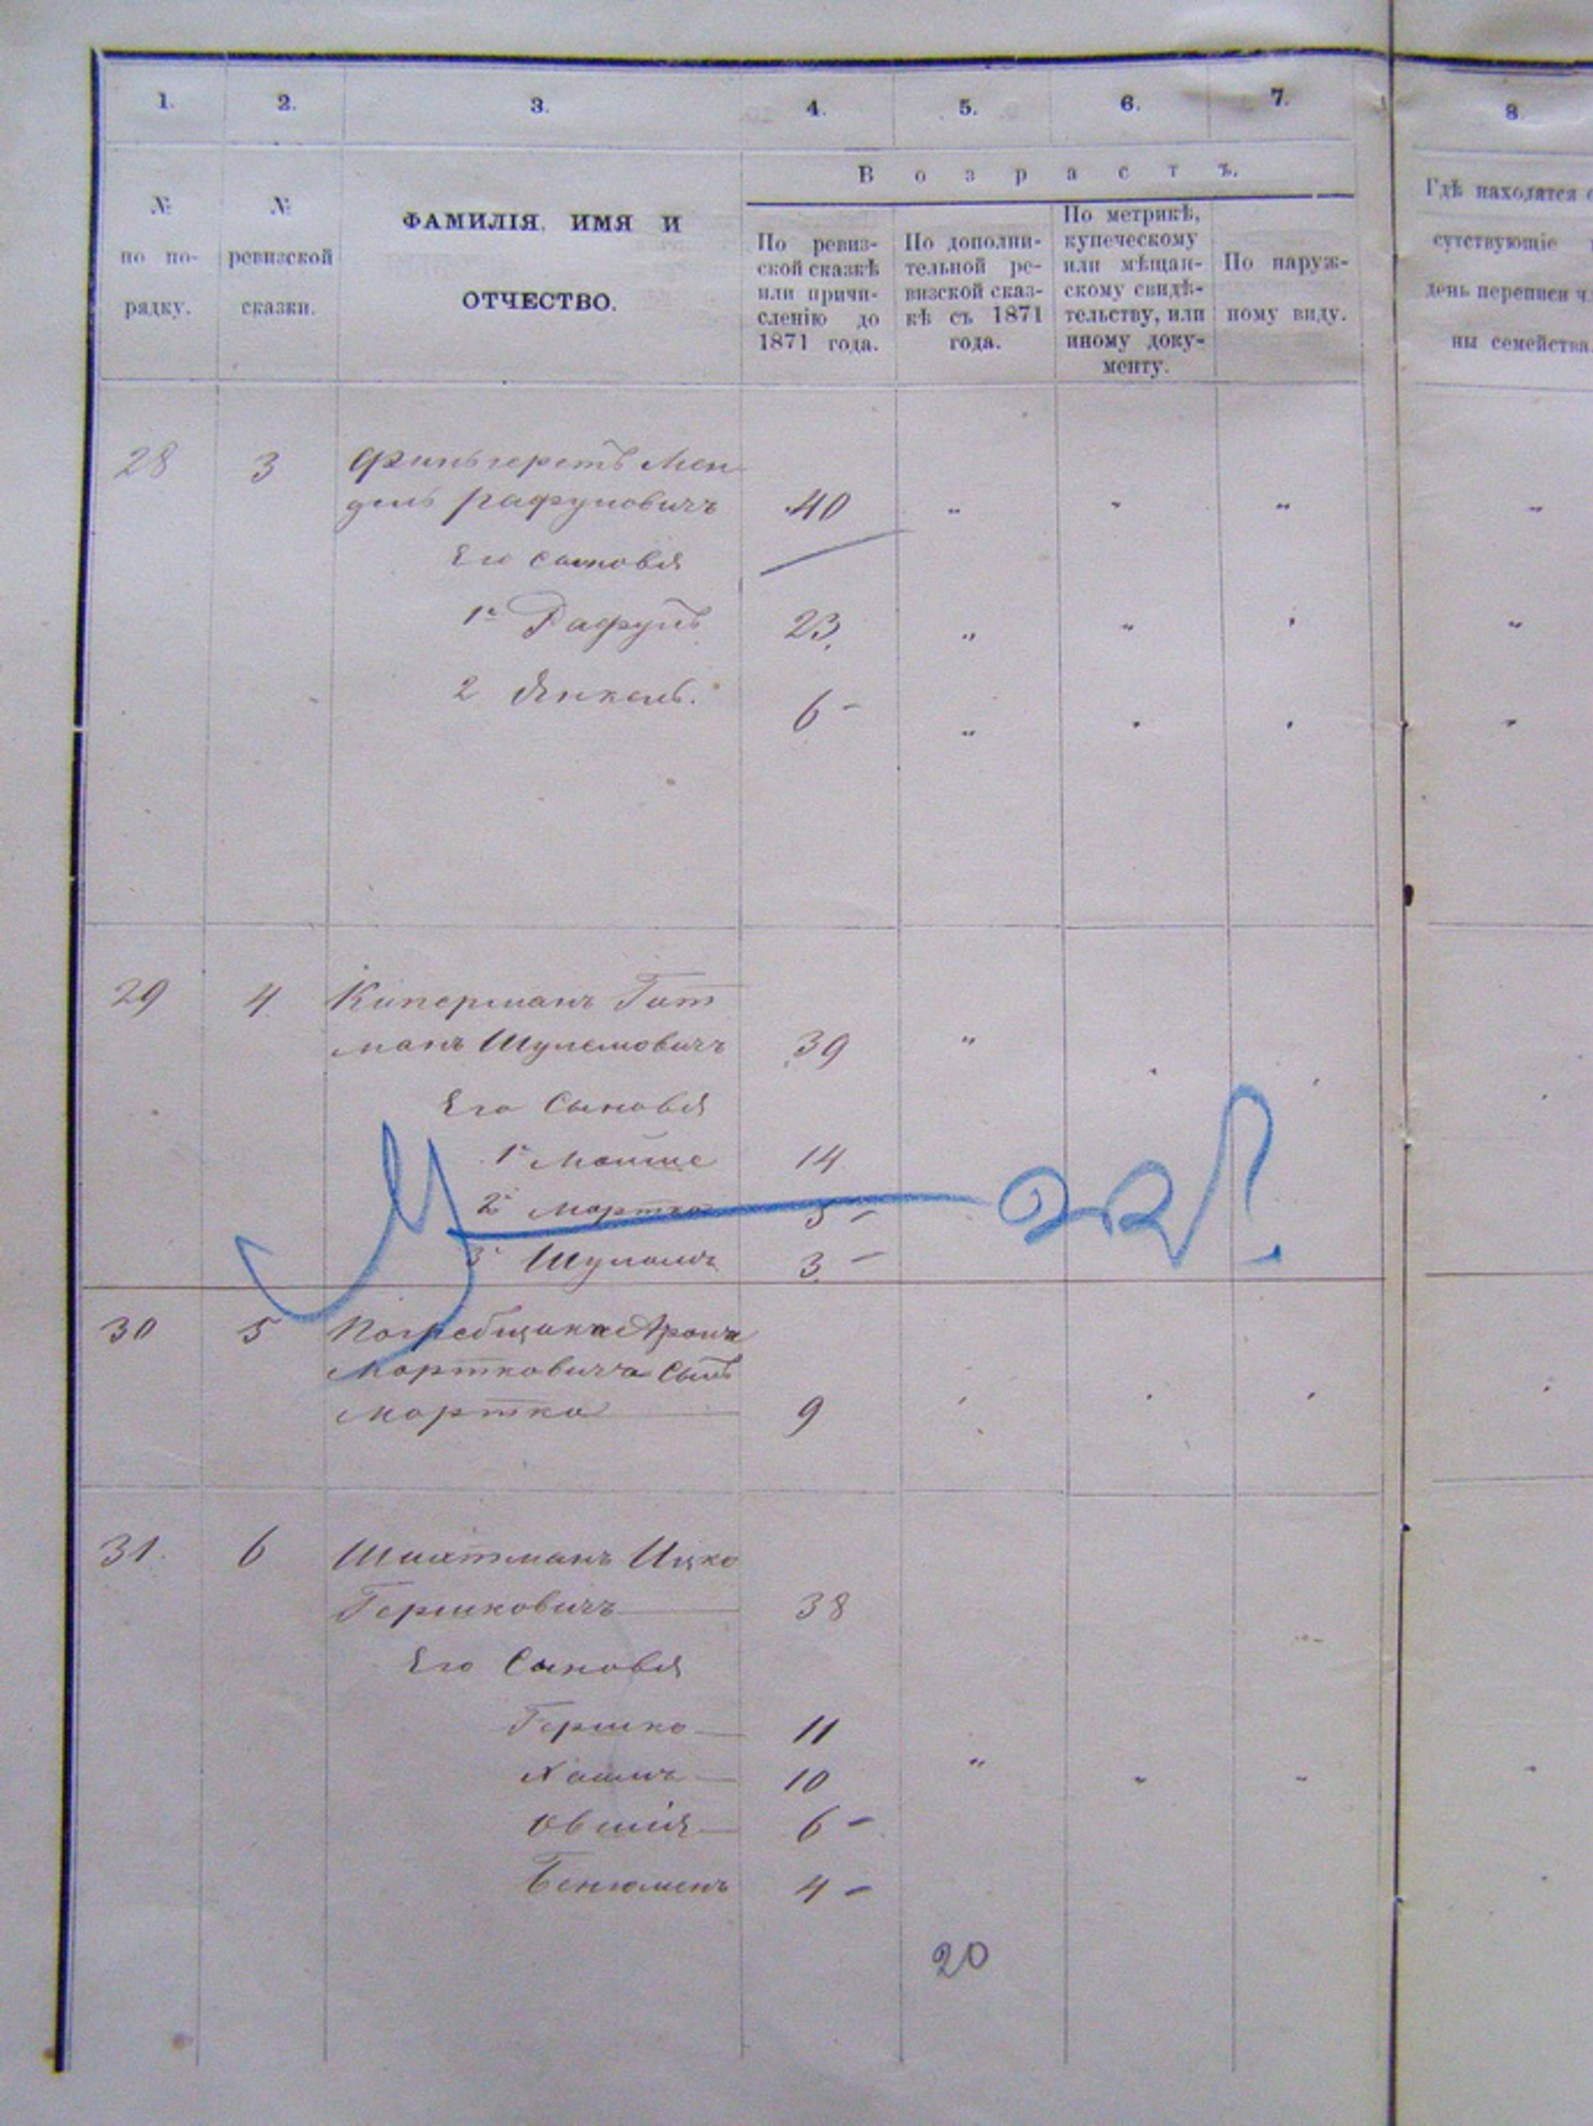 1. 2. 3. 4. 5. 6. 7. 8
В о з р а с т ъ.
№
по по-
рядку.
№
ревизской
сказки.
ФАМИЛІЯ, ИМЯ И
ОТЧЕСТВО.
По ревиз-
ской сказкѣ
или причи-
сленію до
1871 года.
По дополни-
тельной ре-
визской сказ-
кѣ съ 1871
года.
По метрикѣ,
купеческому
или мѣщан-
скому свидѣ-
тельству, или
иному доку-
менту.
По наруж-
ному виду.
Гдѣ находятся
сутствующіе
день переписи
ны семейства
28 3 Финьгеретъ Мен
дель Рафуловичъ 40
Его сыновья
1й Рафулъ 23
2 Янкель. 6 -
29 4 Киперманъ Гит
манъ Шулемовичъ 39
Его Сыновья
1й Моише 14
2й Мортко 5 -
3й Шулимъ 3 -
30 5 Погребщика Арона
Мортковича сынъ
Мортко 9
31. 6 Шихтманъ Ицко
Гершковичъ 38
Его Сыновья
Гершко 11
Хаимъ 10
Овшія 6 -
Бенюменъ 4 -
20